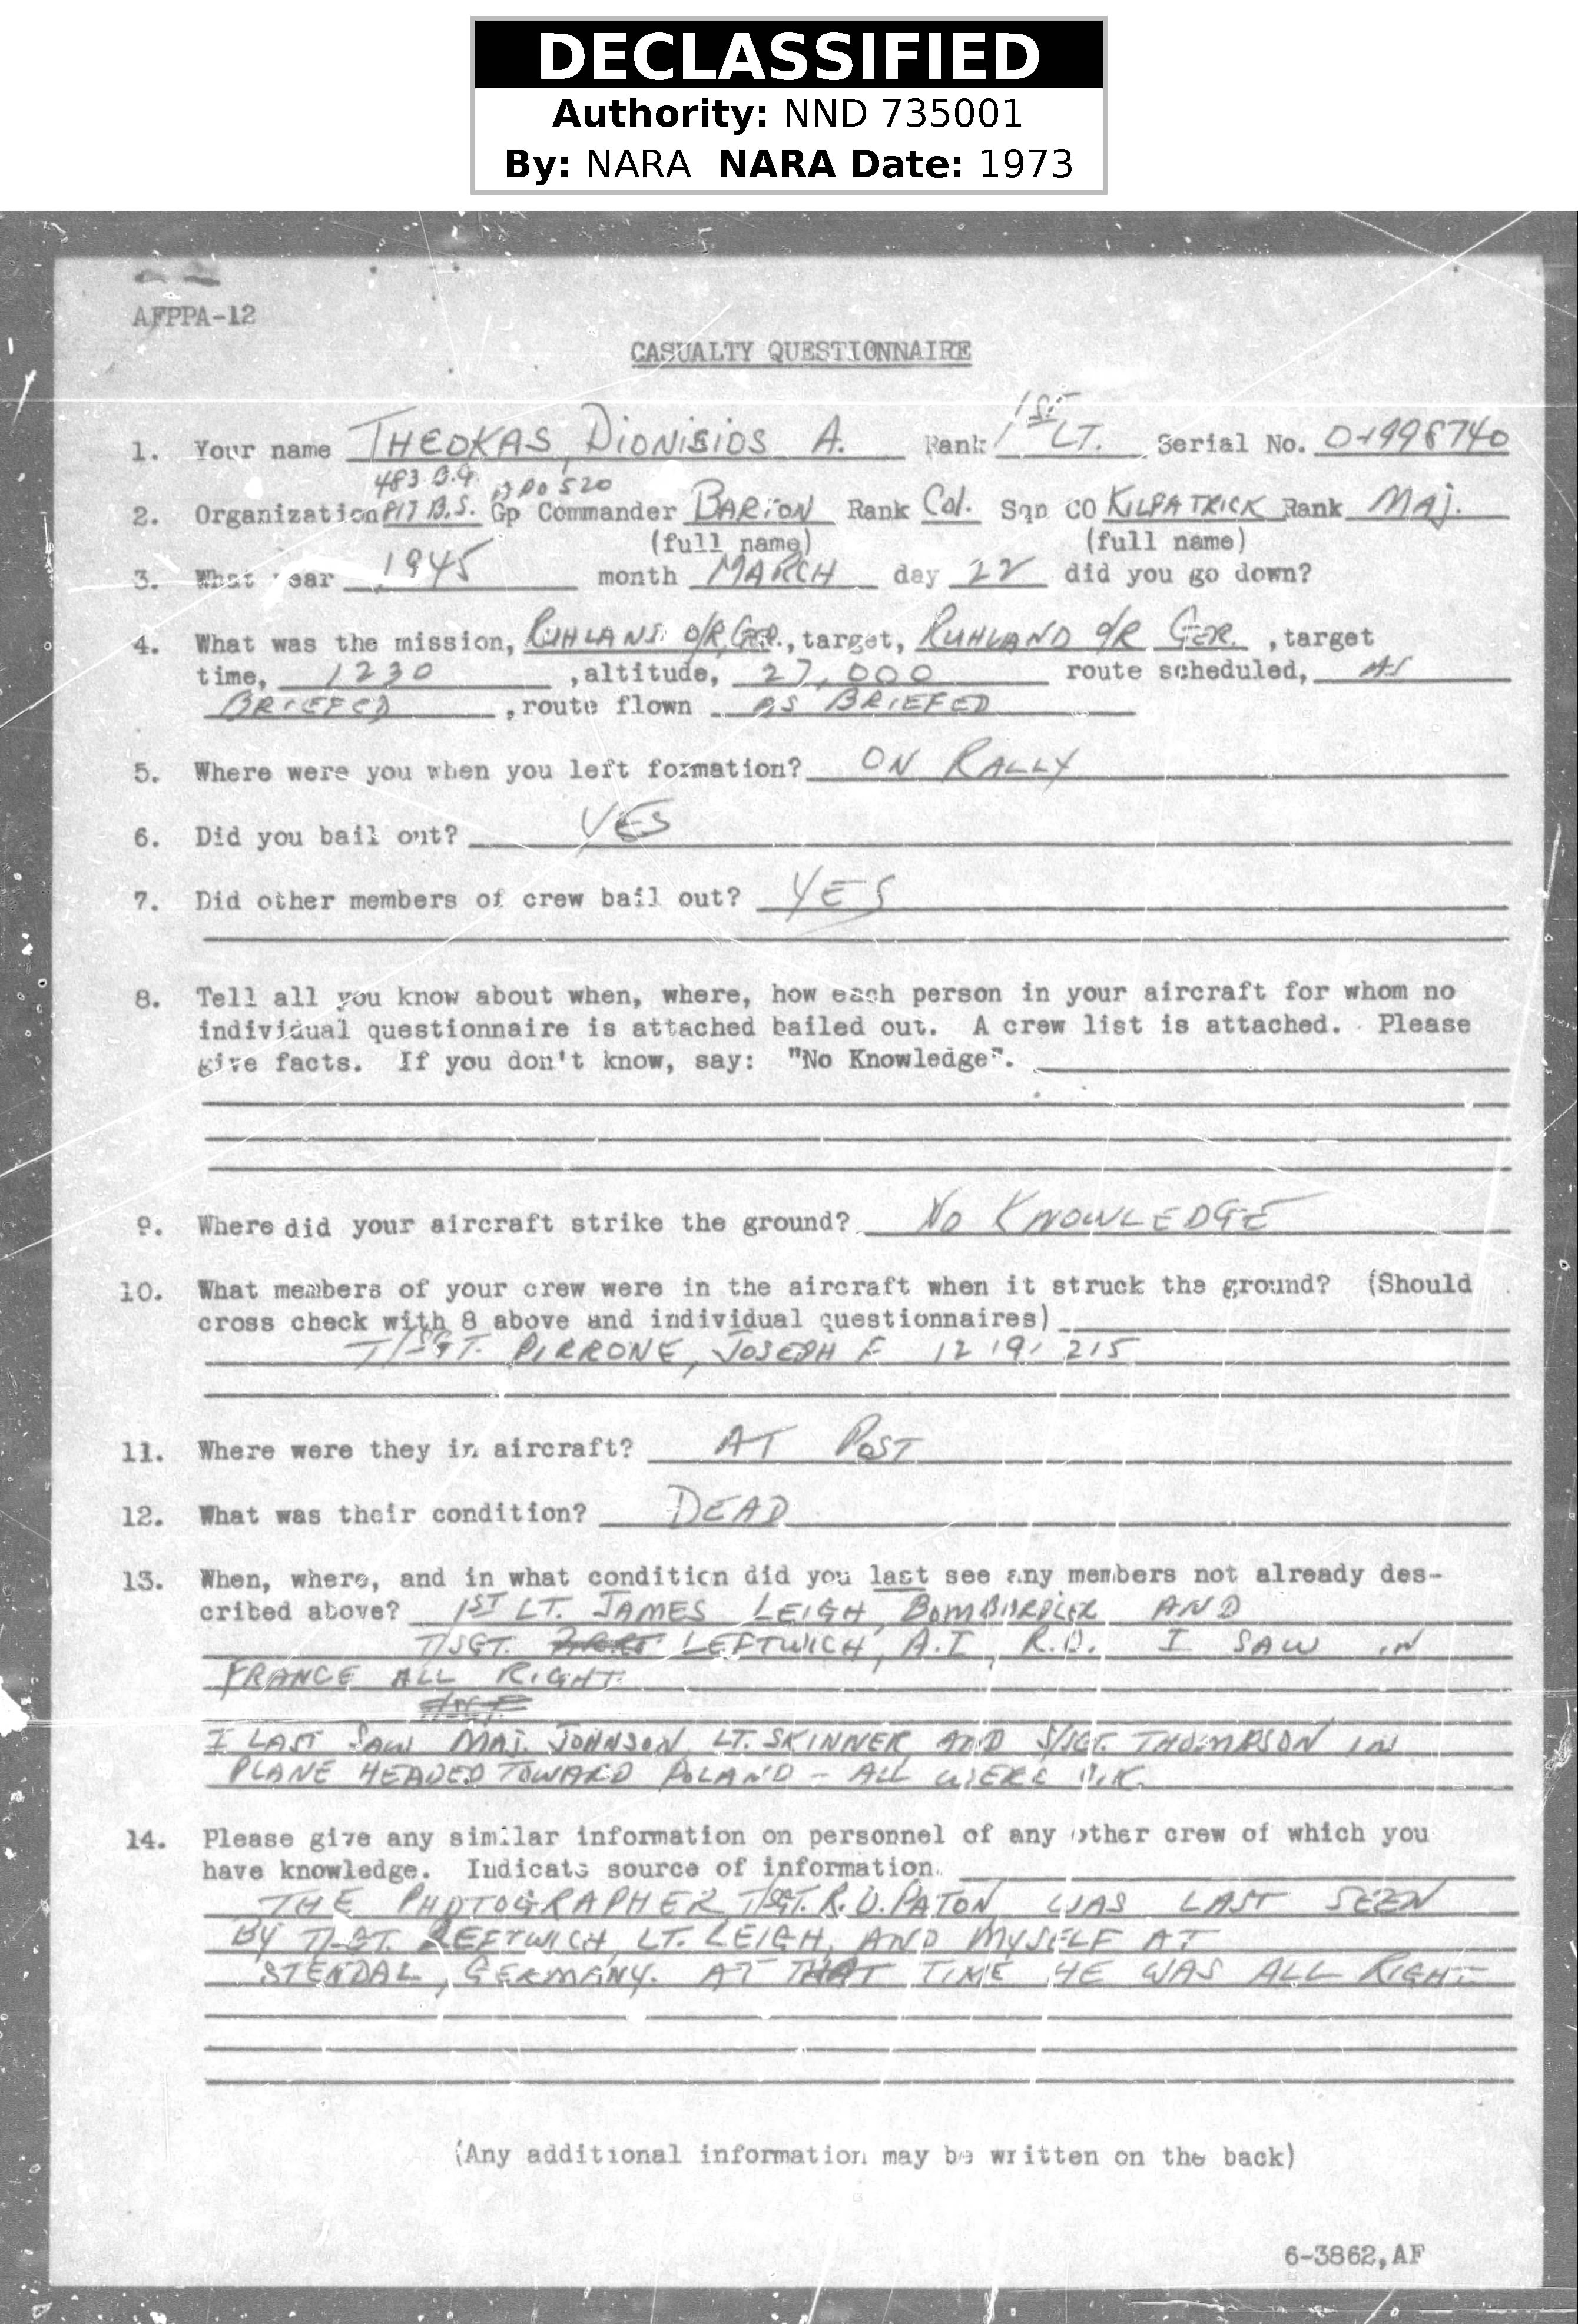 DECLASSIFIED
Authority: NND 735001
By: NARA NARA Date: 1973
AFPPA-12
CASUALTY QUESTIONNAIRE
1ST
1. Your name THEOKAS, DIONISIOS A. Rank 1ST LT. Serial No. 0-1998740
483 B.G. APO 520
2. Organization 817 B.S. Gp Commander BARTON Rank Col. Sqn CO KILPATRICK Rank MAJ.
(full name) (full name)
3. What year 1945 month MARCH day 22 did you go down?
4. What was the mission, RUHLAND O/R, GER., target, RUHLAND O/R GER. , target
time, 1230 , altitude, 27,000 route scheduled, AS
BRIEFED , route flown AS BRIEFED
5. Where were you when you left formation? ON RALLY
6. Did you bail out? YES
7. Did other members of crew bail out? YES
8. Tell all you know about when, where, how each person in your aircraft for whom no
individual questionnaire is attached bailed out. A crew list is attached. Please
give facts. If you don't know, say: "No Knowledge".
9. Where did your aircraft strike the ground? NO KNOWLEDGE
10. What members of your crew were in the aircraft when it struck the ground? (Should
cross check with 8 above and individual questionnaires)
T/SGT. PIRRONE, JOSEPH F 12 191 215
11. Where were they in aircraft? AT POST
12. What was their condition? DEAD
13. When, where, and in what condition did you last see any members not already des-
cribed above? 1ST LT. JAMES LEIGH, BOMBARDIER AND
T/SGT. LEFTWICH, A.I., R.O. I SAW IN
FRANCE ALL RIGHT.
I LAST SAW MAJ. JOHNSON, LT. SKINNER, AND S/SGT. THOMPSON IN
PLANE HEADED TOWARD POLAND - ALL WERE O.K.
14. Please give any similar information on personnel of any other crew of which you
have knowledge. Indicate source of information.
THE PHOTOGRAPHER T/SGT. R.D. PATON WAS LAST SEEN
BY T/SGT. LEFTWICH, LT. LEIGH, AND MYSELF AT
STENDAL, GERMANY. AT THAT TIME HE WAS ALL RIGHT
(Any additional information may be written on the back)
6-3862, AF